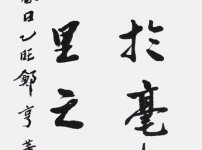 於毫
里之
日乙旺鄭亨